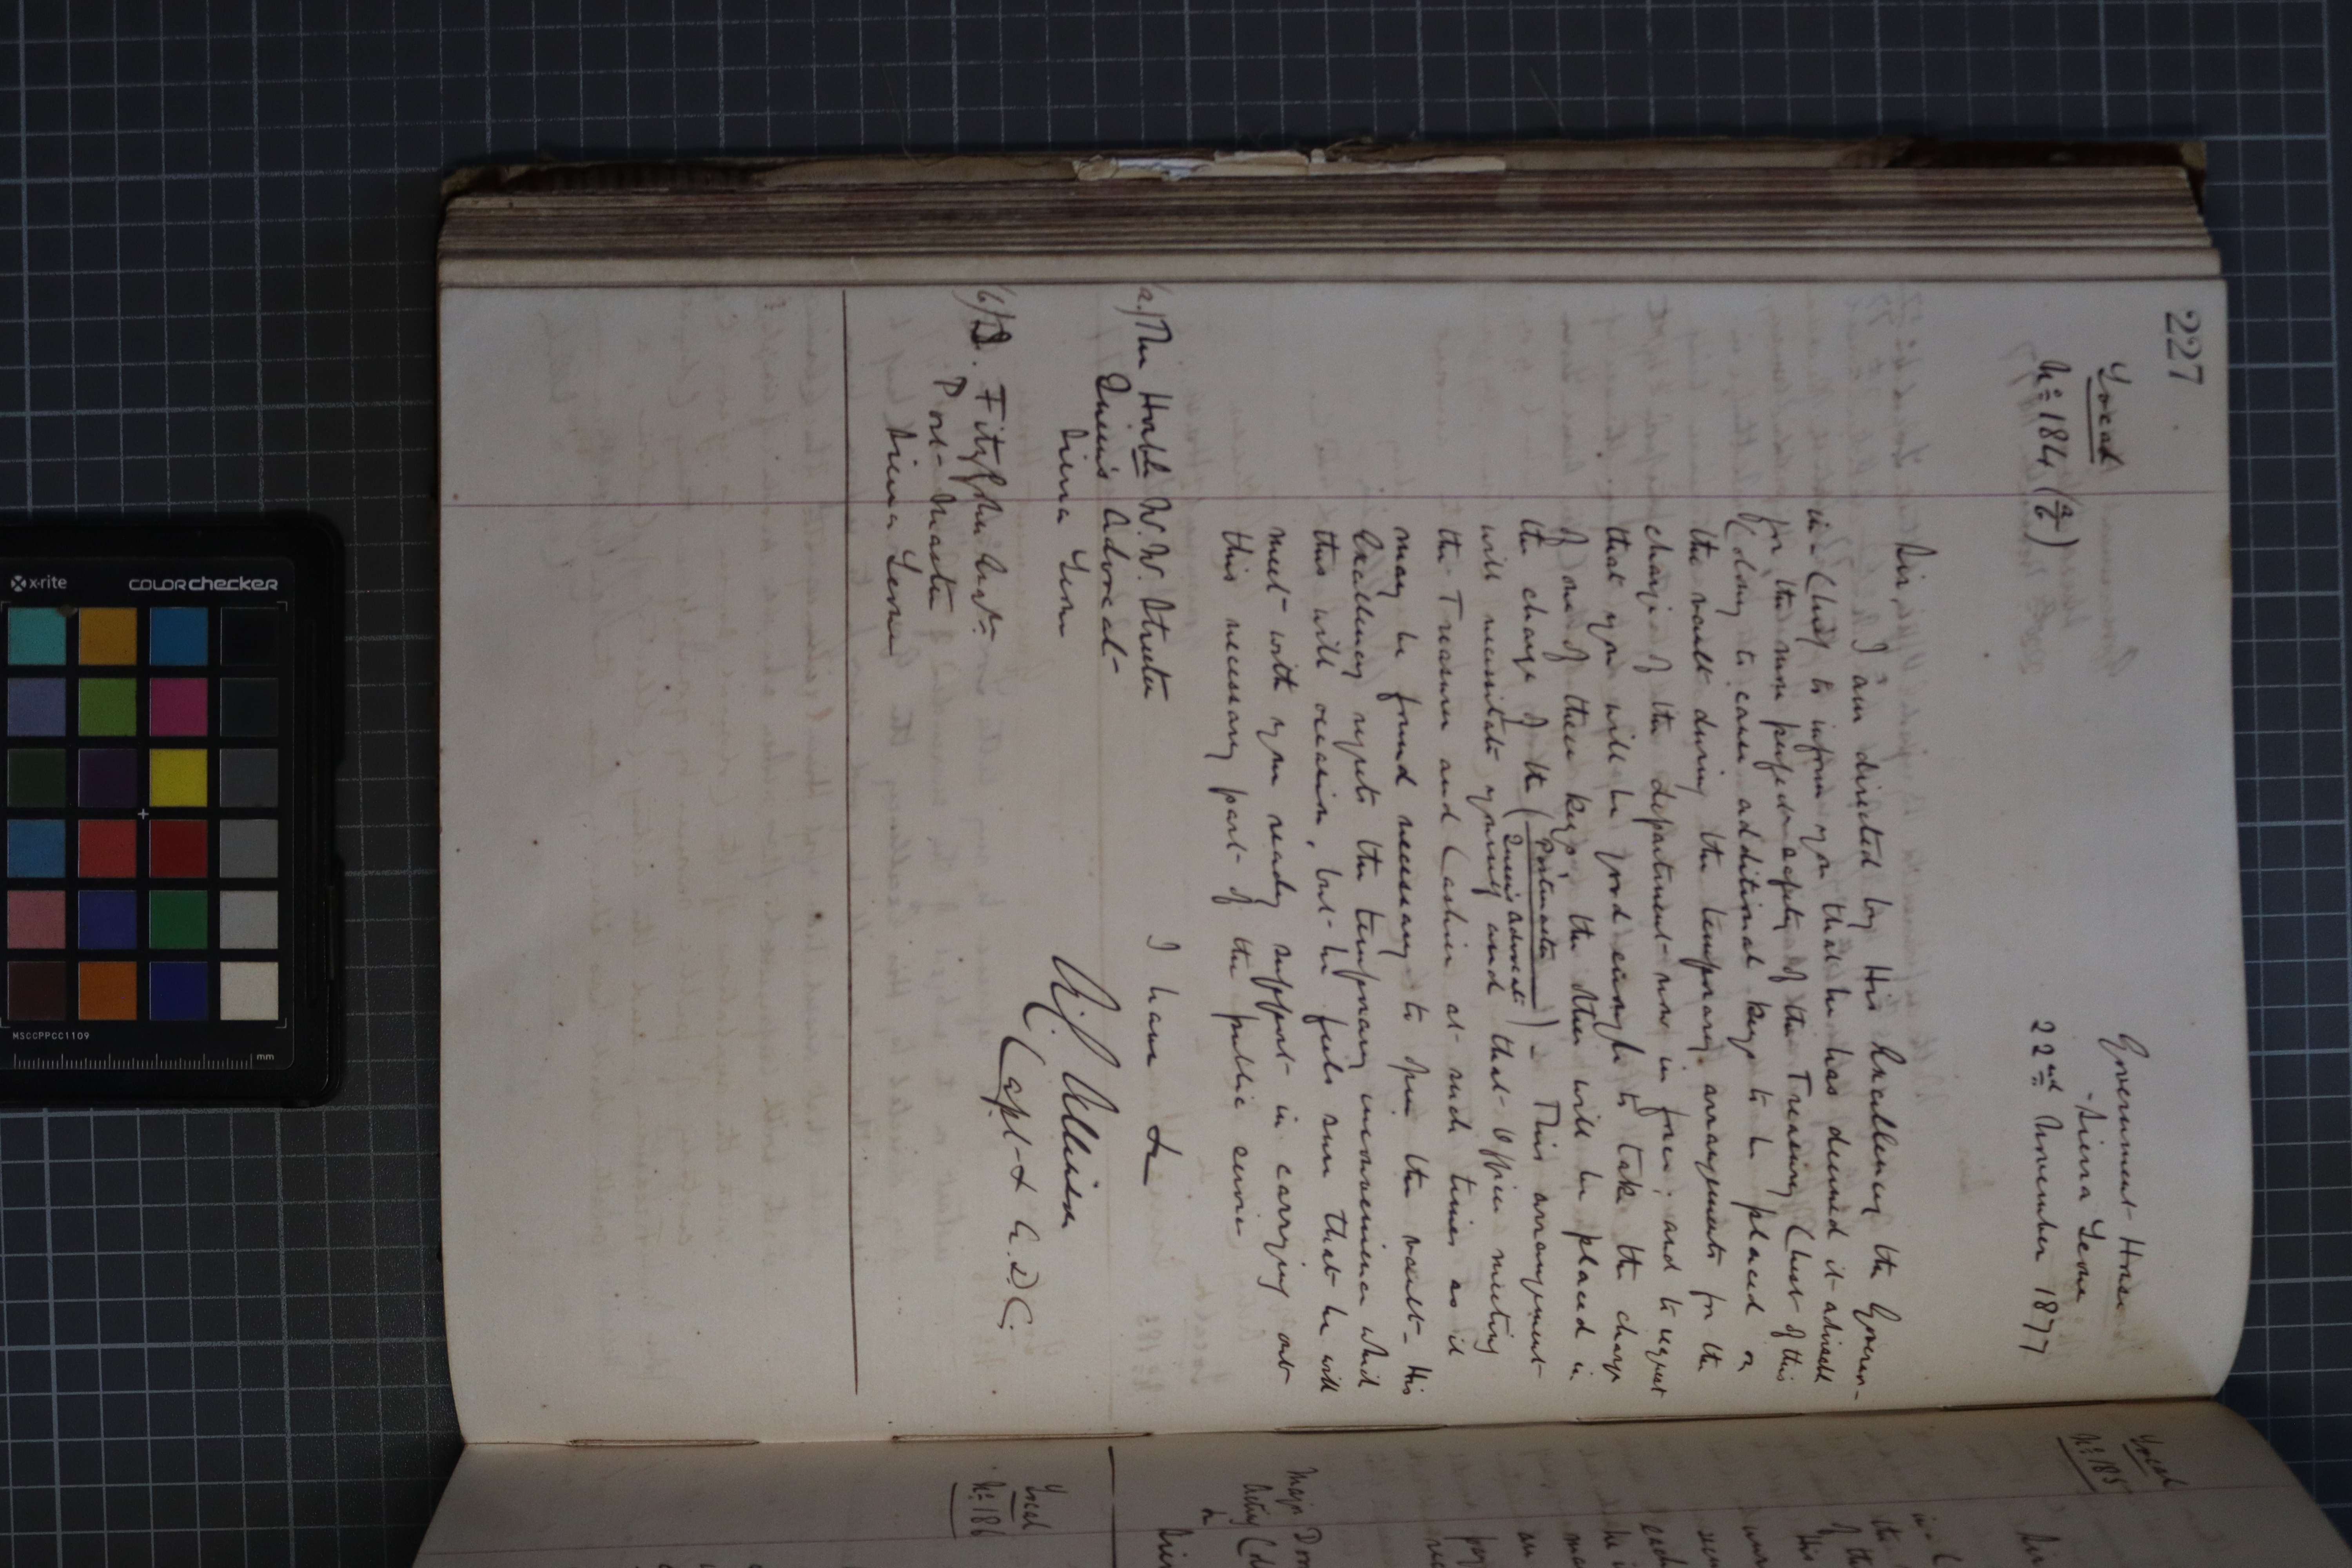 227
Local
No 184 (a/b)
Government House
Sierra Leone
22nd November 1877
Sir,
I am directed by His Excellency the Governor-
in-Chief to inform you that he has deemed it advisable
for the more perfect safety of the Treasury Chest of this
Colony to cause additional keys to be placed on
the vault during the temporary arrangements for the
charge of the department now in force; and to request
that you will be good enough to take the charge
of one of these keys, the other will be placed in
the charge of the (Postmaster / Queen's Advocate) - This arrangement
will necessitate yourself and that Officer meeting
the Treasurer and Cashier at such times as it
may be found necessary to open the vault - His
Excellency regrets the temporary inconvenience which
this will occasion, but he feels sure that he will
meet with your ready support in carrying out
this necessary part of the public service
I have &
Capt & A.D.C.
(a) The Honble W. W. Streeten
Queen's Advocate
Sierra Leone
(b) D. Fitzjohn Esqr
Post-Master
Sierra Leone
Local
No 185
Sir
Major
Local
No 186
Sir